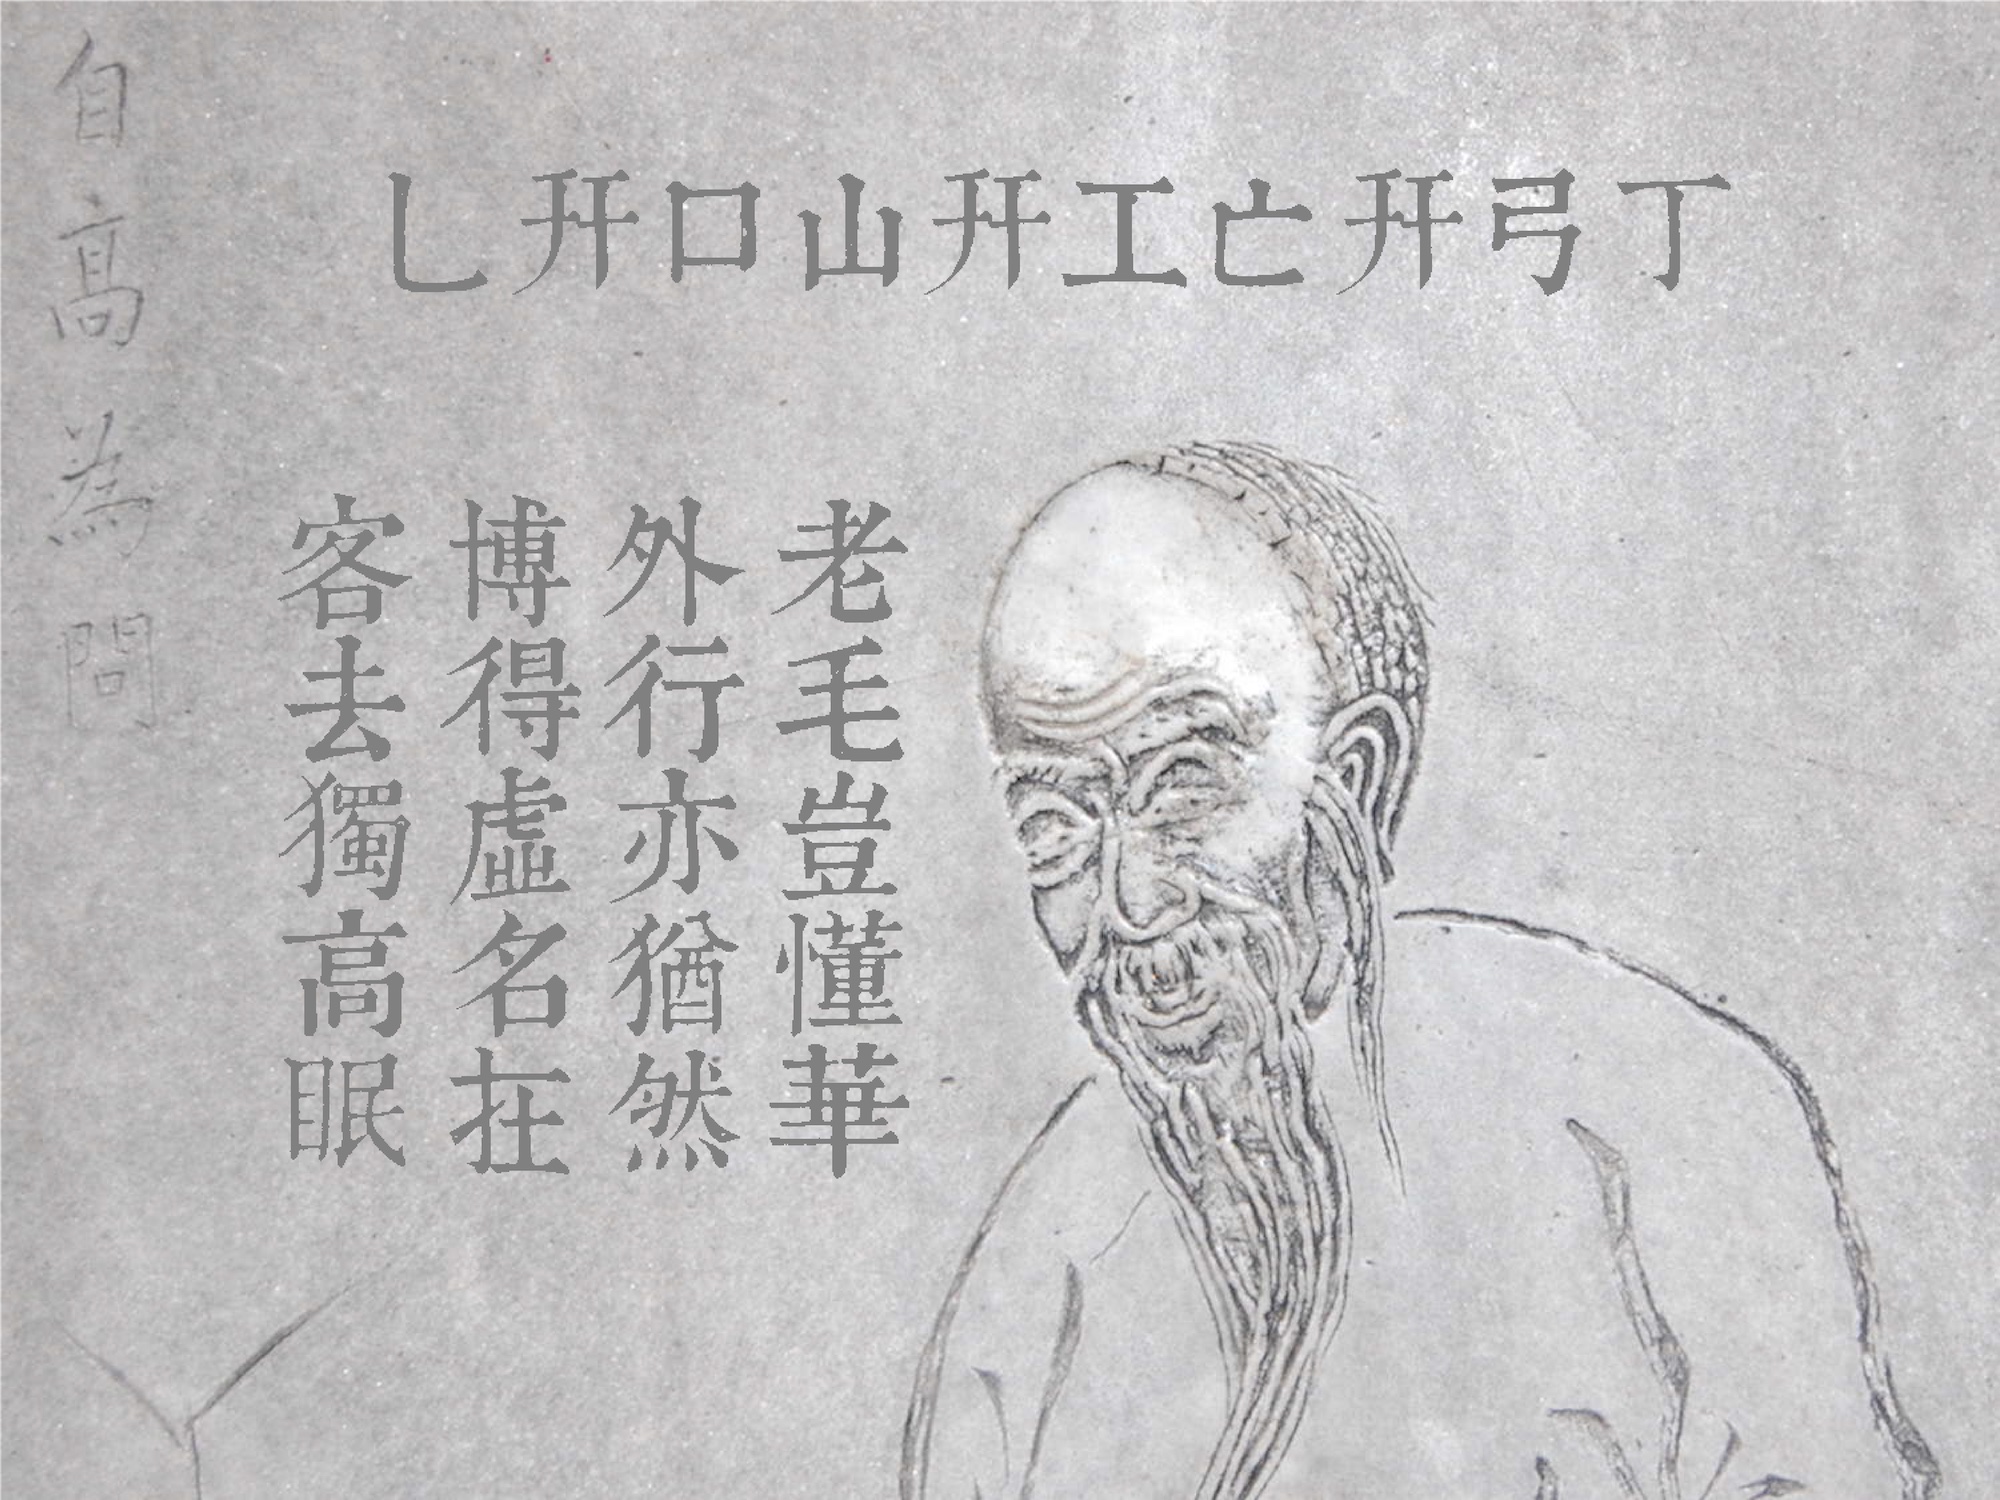 乚幵口山幵工亡幵弓丁
老毛豈懂華
外行亦猶然
博得虛名在
客去獨高眠
自高為問